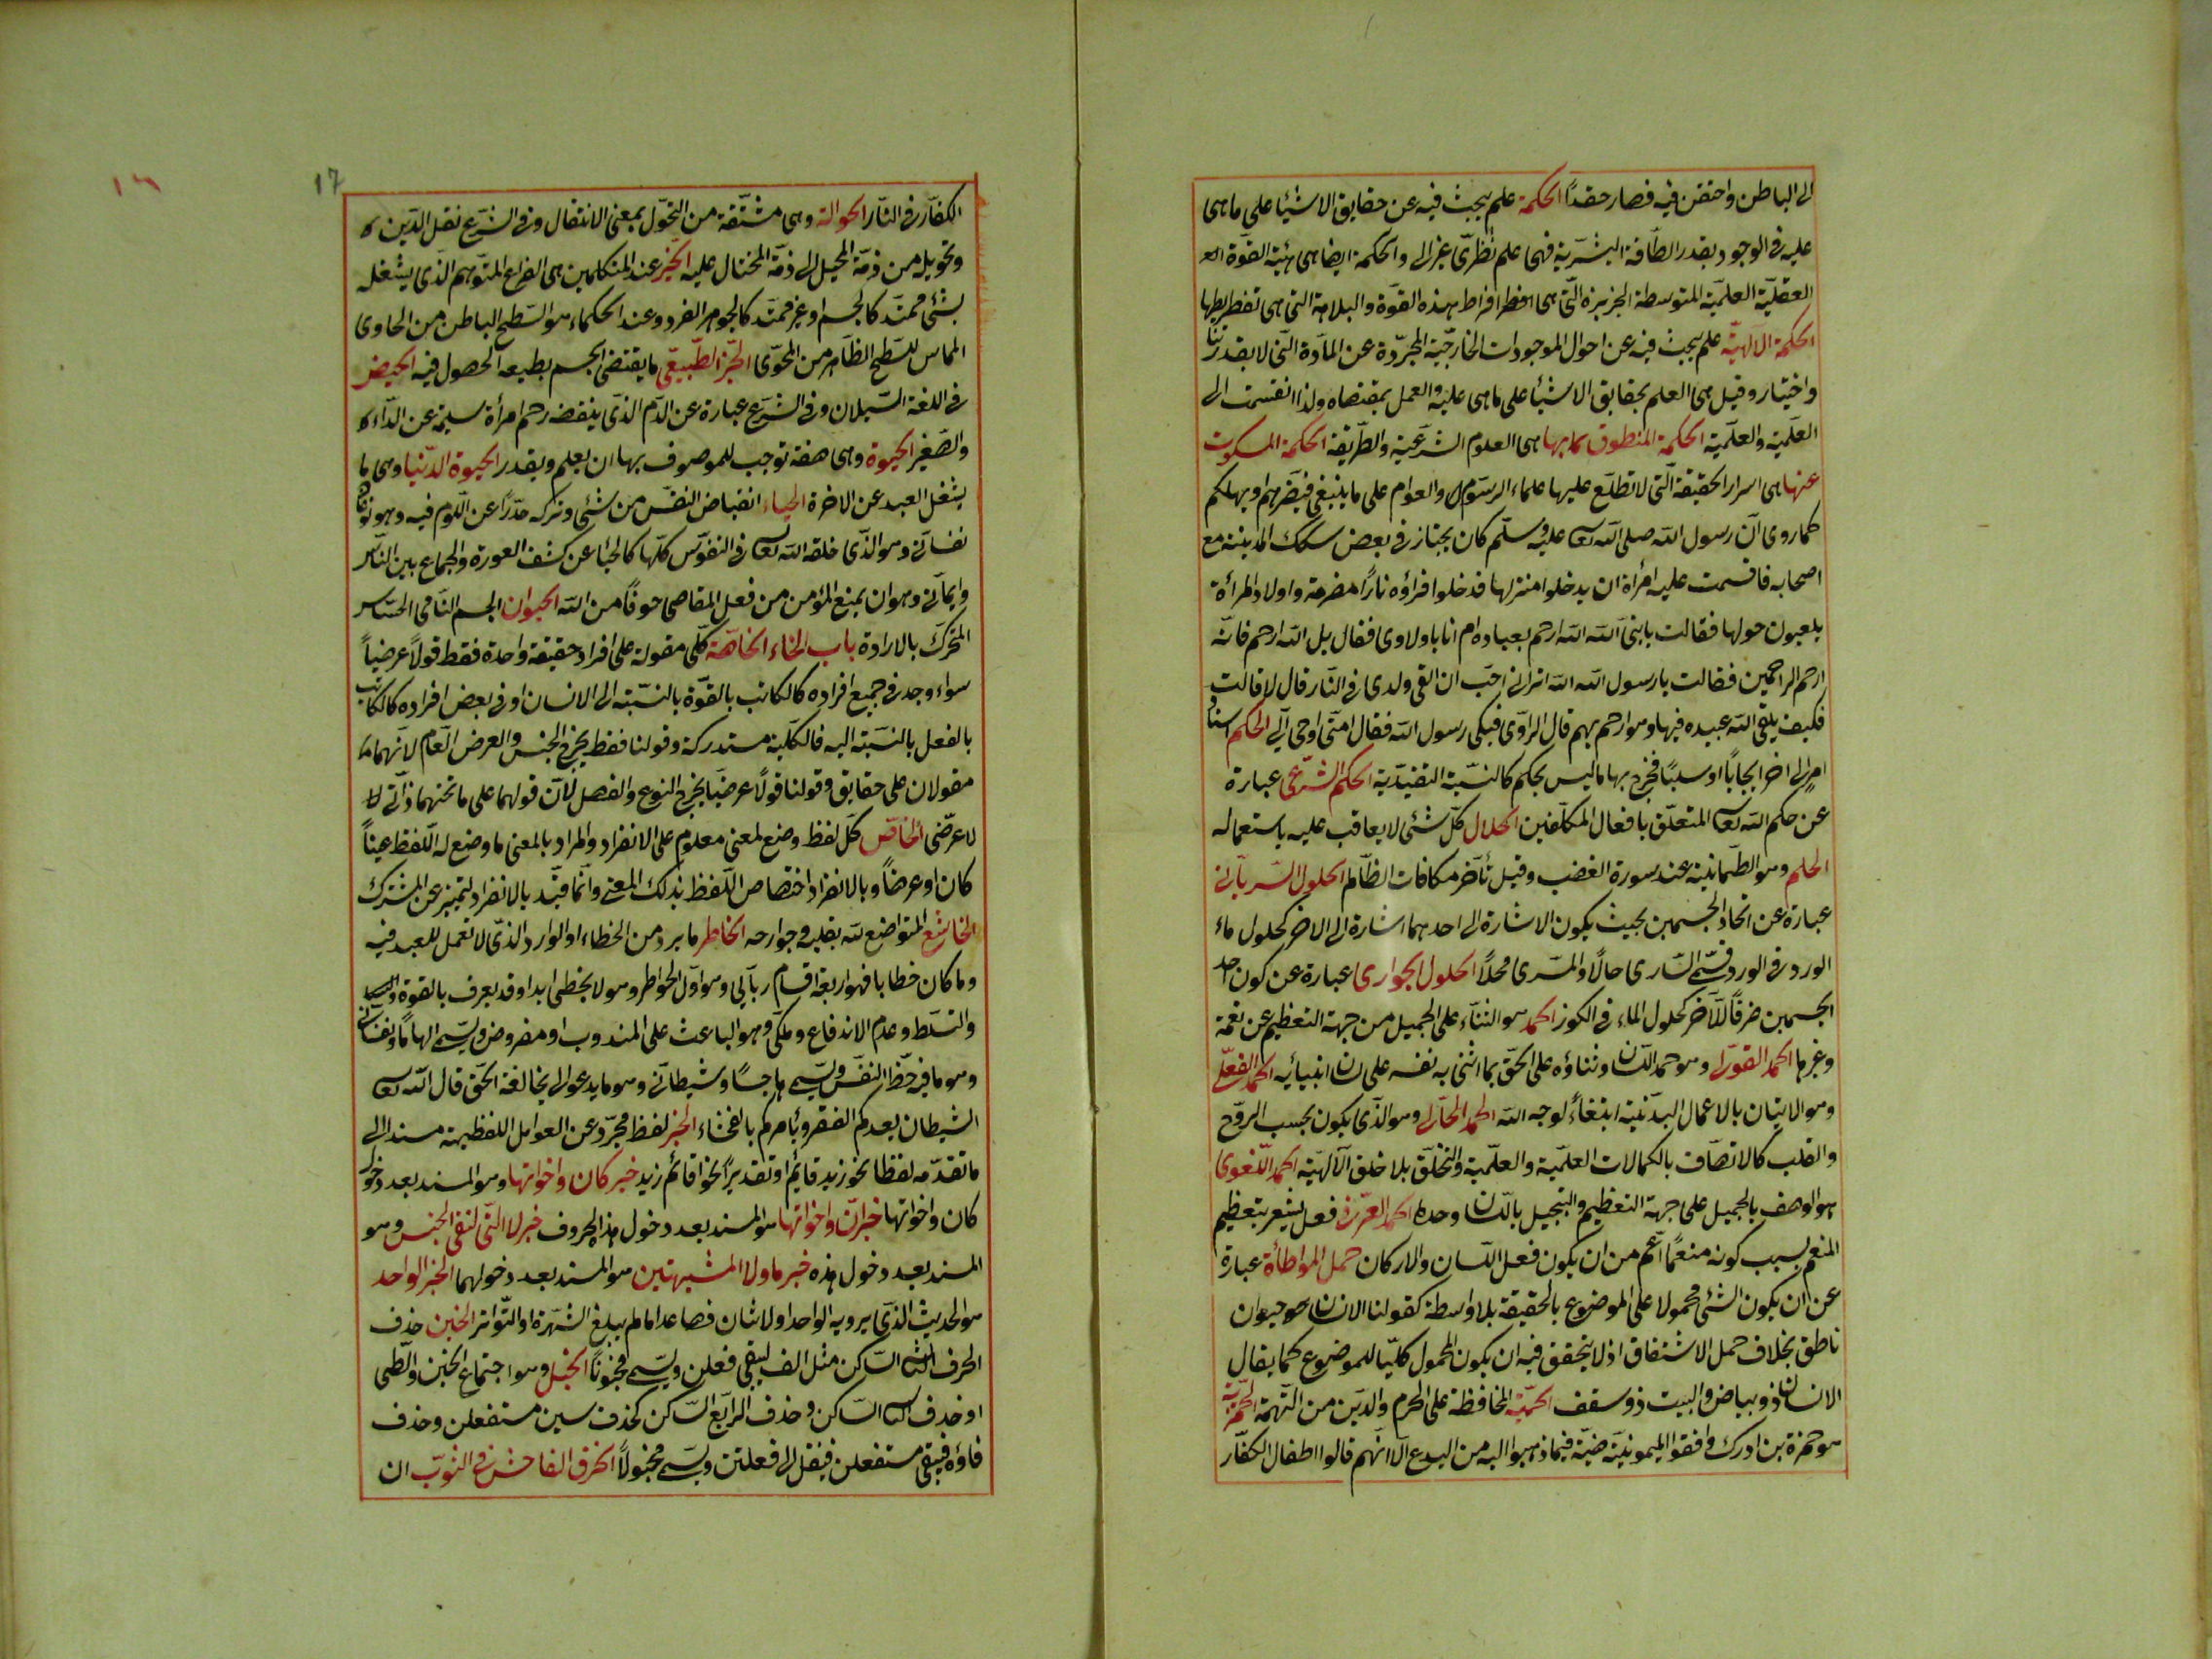 الى الباطن واحتقن فيه فصار حقدًا الحكمة علم يبحث فيه عن حقايق الاشيا على ما هى
عليه فى الوجود بقدر الطاقة البشرية فهى علم نظرى غير الى والحكمة ايضا هى هيئة القوة
العقلية العلمية المتوسطة الجزبزة التى هى افراط هذه القوة والبلاهة التى هى تفريطها
الحكمة الالهية علم يبحث فيه عن احوال الموجودات الخارجية المجردة عن المادة التى لا بقدرتنا
واختيار وقيل هى العلم بحقايق الاشيا على ما هى عليه والعمل بمقتضاه ولذا انقسمت الى
العلمية والعملية الحكمة المنطوق بها هى العلوم الشرعية والطريقة الحكمة المسكوت
عنها هى اسرار الحقيقة التى لا تطلع عليها علماء الرسوم والعوام على ما ينبغى فيضرهم او يهلكهم
كما روى ان رسول الله صلى الله تعا عليه وسلم كان يجتاز فى بعض سكك المدينة مع
اصحابه فاقسمت عليه امرأة ان يدخلوا منزلها فدخلوا فراؤه نارًا مضرمة واولاد المرأة
يلعبون حولها فقالت يا نبى الله الله ارحم بعباده ام انا باولادى فقال بل الله ارحم فانه
ارحم الراحمين فقالت يا رسول الله الله اترانى احب ان القى ولدى فى النار قال لا قالت
فكيف يلقى الله عبيده فيها وهو ارحم بهم قال الراوى فبكى رسول الله فقال امتى اوحى الى الحكم اسناد
امر الى اخر ايجابًا او سلبًا فخرج بها ما ليس بحكم كالنسبة التقيدية الحكم الشرعى عبارة
عن حكم الله تعا المتعلق بافعال المكلفين الحلال كل شئ لا يعاقب عليه باستعماله
الحلم وهو الطمانينة عند سورة الغضب وقيل تأخر مكافات الظالم الحلول السريانى
عبارة عن اتحاد الجسمين بحيث يكون الاشارة الى احدهما اشارة الى الاخر كحلول ماء
الورد فى الورد فسمى السارى حالًا والمسرى محلًا الحلول الجوارى عبارة عن كون احد
الجسمين ضرفًا للآخر كحلول الماء فى الكوز الحمد هو الثناء على الجميل من جهة التعظيم عن نعمة
وغيرها الحمد القولى وهو حمد اللسان وثناؤه على الحق بما اثنى به نفسه على لسان انبيائيه الحمد الفعلى
وهو الاتيان بالاعمال البدنية ابتغاءً لوجه الله الحمد الحالى وهو الذى يكون بحسب الروح
والقلب كالاتصاف بالكمالات العلمية والعلمية والتخلق بلا خلق الآلهية الحمد اللغوى
هو الوصف بالجميل على جهة التعظيم والتبجيل باللسان وحده الحمد العرفى فعل يشعر بتعظيم
المنعم بسبب كونه منعمًا اعم من ان يكون فعل اللسان والاركان حمل المواطأة عبارة
عن ان يكون الشئ محمولا على الموضوع بالحقيقة بلا واسطة كقولنا الانسان حيوان
ناطق بخلاف حمل الاشتقاق اذ لا يتحقق فيه ان يكون المحمول كليًا للموضوع كما يقال
الانسان ذو بياض والبيت ذو سقف الحمية المحافظة على الحرم والدين من التهمة الحمزية
هو حمزة بن ادرك وافقوا الميمونية فيما ذهبوا اليه من البدع الا انهم قالوا اطفال الكفار
17
١٦
الكفار فى النار الحوالة وهى مشتقة من التحول بمعنى الانتقال وفى الشرع نقل الدين
وتحويله من ذمة المحيل الى ذمة المحتال عليه الحيز عند المتكلمين هى الفراغ المتوهم الذى يشغله
بشئ ممتد كالجسم او غير ممتد كالجوهر الفرد وعند الحكماء هو السطح الباطن من الحاوى
المماس للسطح الظاهر من المحوى الحيز الطبيعى ما يقتضى الجسم بطبعه الحصول فيه الحيض
فى اللغة السيلان وفى الشرع عبارة عن الدم الذى ينفضه رحم امرأة سليمة عن الداء
والصغير الحيوة وهى صفة توجب للموصوف بها ان يعلم ويقدر الحيوة الدنيا وهى ما
يشغل العبد عن الاخرة الحياء انقباض النفس من شئ وتركه حذرًا عن اللوم فيه وهو نوعان
نفسانى وهو الذى خلقه الله تعا فى النفوس كلها كالحياء عن كشف العورة والجماع بين الناس
وايمانى وهو ان يمنع المؤمن من فعل المعاصى خوفًا من الله الحيوان الجسم النامى الحساس
المتحرك بالارادة باب الخاء الخاصة كلى مقولة على افراد حقيقة واحدة فقط قولًا عرضيًا
سواء وجد فى جميع افراده كالكاتب بالقوة بالنسبة الى الانسان او فى بعض افراده كالكاتب
بالفعل بالنسبة اليه فالكلية مستدركة وقولنا فقط يخرج الجنس والعرض العام لانهما
مقولان على حقايق وقولنا قولًا عرضيًا يخرج النوع والفصل لان قولهما على ما تحتهما ذاتى
لا عرضى الخاص كل لفظ وضع لمعنى معلوم على الانفراد والمراد بالمعنى ما وضع له اللفظ عينًا
كان او عرضًا وبالانفراد اختصاص اللفظ بذلك المعنى وانما قيد بالانفراد لتميز عن المشترك
الخاشع المتواضع لله بقلبه وجوارحه الخاطر ما يرد من الخطاء او الوارد الذى لا تعمل للعبد فيه
وما كان خطابا فهو اربعة اقسام ربانى وهو اول الخواطر وهو لا يخطى ابدا وقد يعرف بالقوة
والتسلط وعدم الاندفاع وملكى وهو الباعث على المندوب او مفروض ويسمى الهامًا ونفسانى
وهو ما فيه حظ النفس ويسمى هاجسًا وشيطانى وهو ما يدعو الى مخالفة الحق قال الله تعا
الشيطان يعدكم الفقر ويأمركم بالفحشاء الخبر لفظ مجرد عن العوامل اللفظية مسند الى
ما تقدمه لفظا نحو زيد قايم او تقديرًا نحو اقائم زيد خبر كان واخواتها وهو المسند بعد دخول
كان واخواتها خبر ان واخواتها هو المسند بعد دخول هذه الحروف خبر لا التى لنفى الجنس وهو
المسند بعد دخول هذه خبر ما ولا المشبهتين هو المسند بعد دخولهما الخبر الواحد
هو الحديث الذى يرويه الواحد او لاثنان فصاعدا ما لم يبلغ الشهرة او التواتر الخبن حذف
الحرف الثانى الساكن مثل الف ليبقى فعلن ويسمى مخبونًا الخبل وهو اجتماع الخبن والطى
او حذف الثانى الساكن وحذف الرابع الساكن كحذف سين مستفعلن وحذف
فاؤه فيبقى مستفعلن فينقل الى فعلتن ويسمى مخبولًا الخرق الفاحش فى الثوب ان